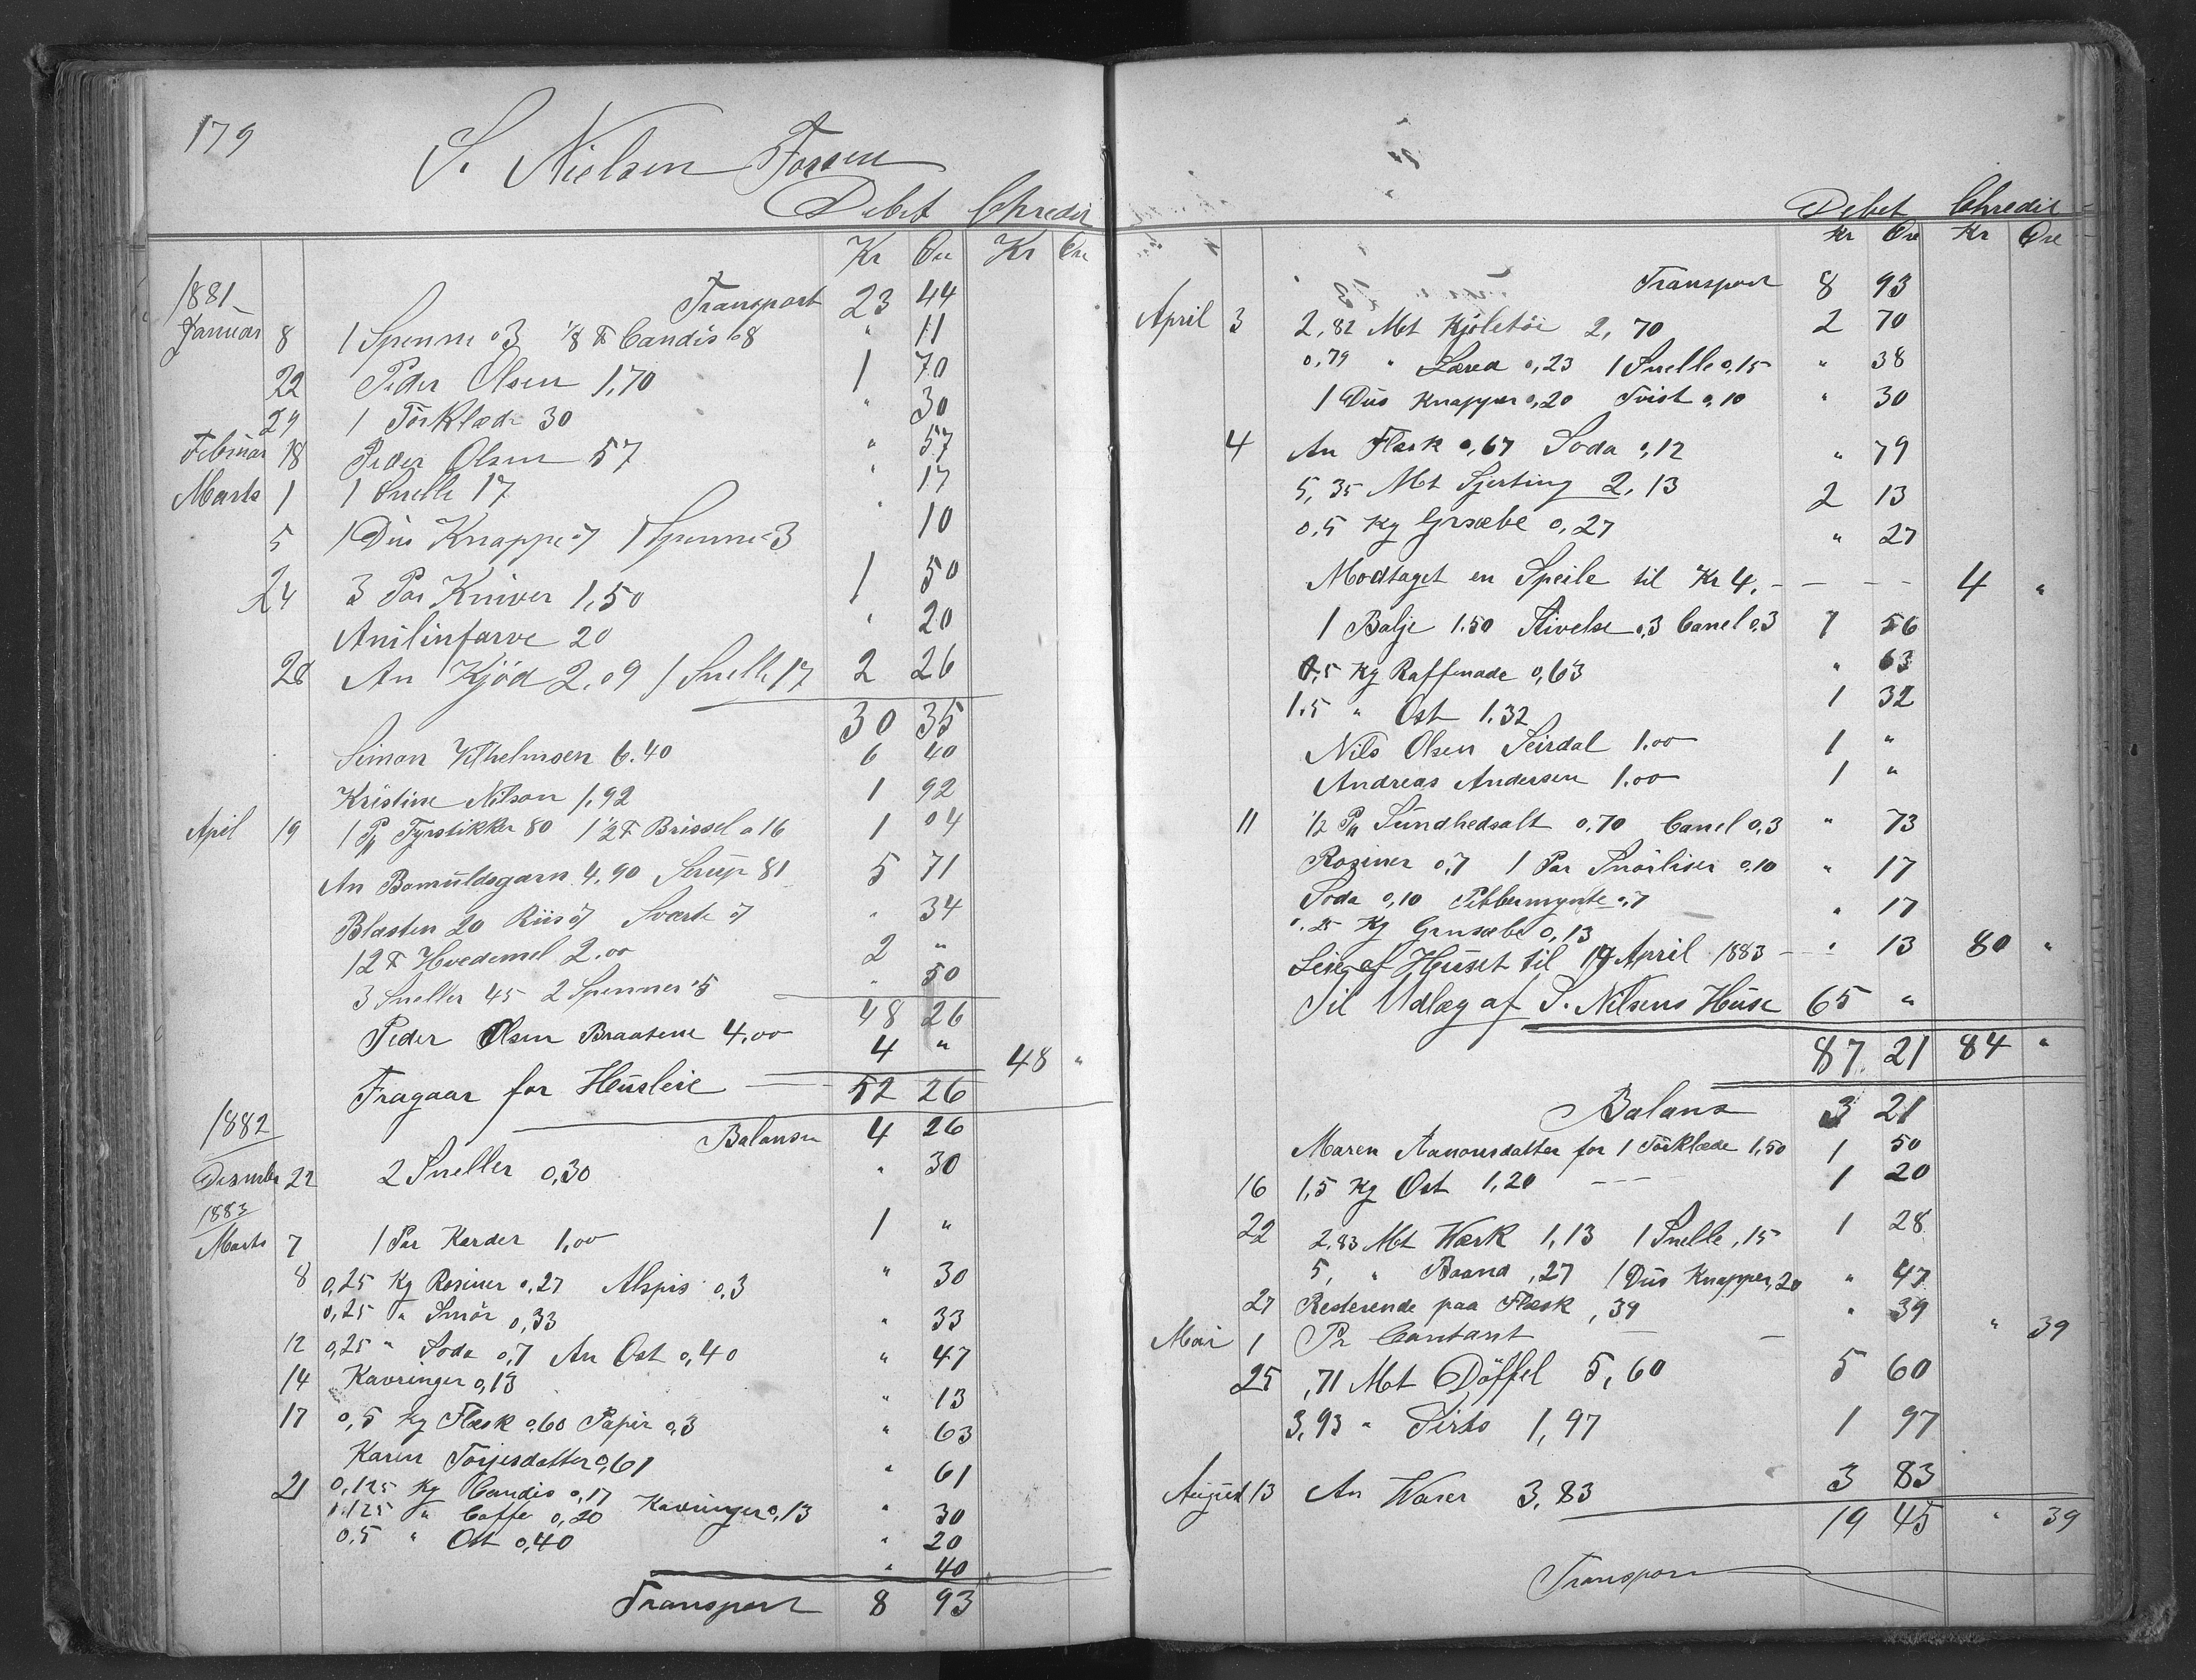 179
S. Nielsen Fossen
Debet Chredit
Kr Øre Kr Øre
1881 Transport 23 44
Januar 8 1 Spenne 03 1/8 ℔ Candis 08 " 11
22 Peder Olsen 1,70 1 70
29 1 Törklæde 30 " 30
Februar 18 Peder Olsen 57 " 57
Marts 1 1 Snelle 17 " 17
5 1 Dus Knappe 07 1 Spenne 03 " 10
24 3 Par Kniver 1,50 1 50
Anilinfarve 20 " 20
28 An Kjöd 2,09 1 Snelle 17 2 26
30 35
Simon Vilhelmsen 6.40 6 40
Kristine Nilson 1,92 1 92
April 19 1 Pk Fyrstikker 80 1 1/2 ℔ Brissel a 16 1 04
An Bomuldsgarn 4,90 Sirup 81 5 71
Blasten 20 Riis 07 Sværte 07 " 34
12 ℔ Hvedemel 2.00 2 "
3 Sneller 45 2 Spenner 05 " 50
48 26
Peder Olsen Braatene 4,00 4 "
Fragaar for Husleie 52 26 48 "
1882 Balanse 4 26
Desember 22 2 Sneller 0,30 " 30
1883
Marts 7 1 Par Karder 1,00 1 "
8 0,25 Kg Rosiner 0,27 Alspis 0,3 " 30
0,25 " Smör 0,33 " 33
12 0,25 " Soda 0,7 An Ost 0,40 " 47
14 Kavringer 0,13 " 13
17 0,5 Kg Flæsk 0,60 Papir 0,3 " 63
Karen Torjesdatter 0,61 " 61
21 0,125 Kg Candis 0,17 Kavringer 0,13 " 30
0,125 " Caffe 0,20 " 20
0,5 " Ost 0,40 " 40
Transport 8 93
Debet Chredit
Kr Øre Kr Øre
Transport 8 93
April 3 2,82 Mt Kjoletöi 2,70 2 70
0,79 " Læred 0,23 1 Snelle 0,15 " 38
1 Dus Knapper 0,20 Tvist 0,10 " 30
4 An Flæsk 0,67 Soda 0,12 " 79
5,35 Mt Sjerting 2,13 2 13
0,5 Kg Grsæbe 0,27 " 27
Modtaget en Speile til Kr 4,- - - - 4 "
1 Balje 1.50 Stivelse 0,3 Canel 0,3 1 56
0,5 Kg Raffenade 0,63 " 63
1.5 " Ost 1.32 1 32
Nils Olsen Seirdal 1.00 1 "
Andreas Andersen 1.00 1 "
11 1/2 Pk Sundhedsalt 0,70 Canel 0,3 " 73
Rosiner 0,7 1 Par Snörliser 0,10 " 17
Soda 0,10 Pebbermynte 0,7 " 17
0.25 Kg Grnsæbe 0,13
Leie af Huset til 19 April 1883 - - " 13 80 "
Til Udlæg af S. Nilsens Huse 65 "
87 21 84 "
Balans 3 21
Maren Aanonsdatter for 1 Törklæde 1,50 1 50
16 1,5 Kg Ost 1,20 - - - 1 20
22 2,83 Mt Værk 1,13 1 Snelle ,15 1 28
5, " Baand ,27 1 Dus Knapper ,20 " 47
27 Resterende paa Flæsk ,39 " 39
Mai 1 Pr Contant - - " 39
25 ,71 Mt Döffel 5,60 5 60
3,93 " Sirts 1,97 1 97
August 13 An Varer 3,83 3 83
19 45 " 39
Transport